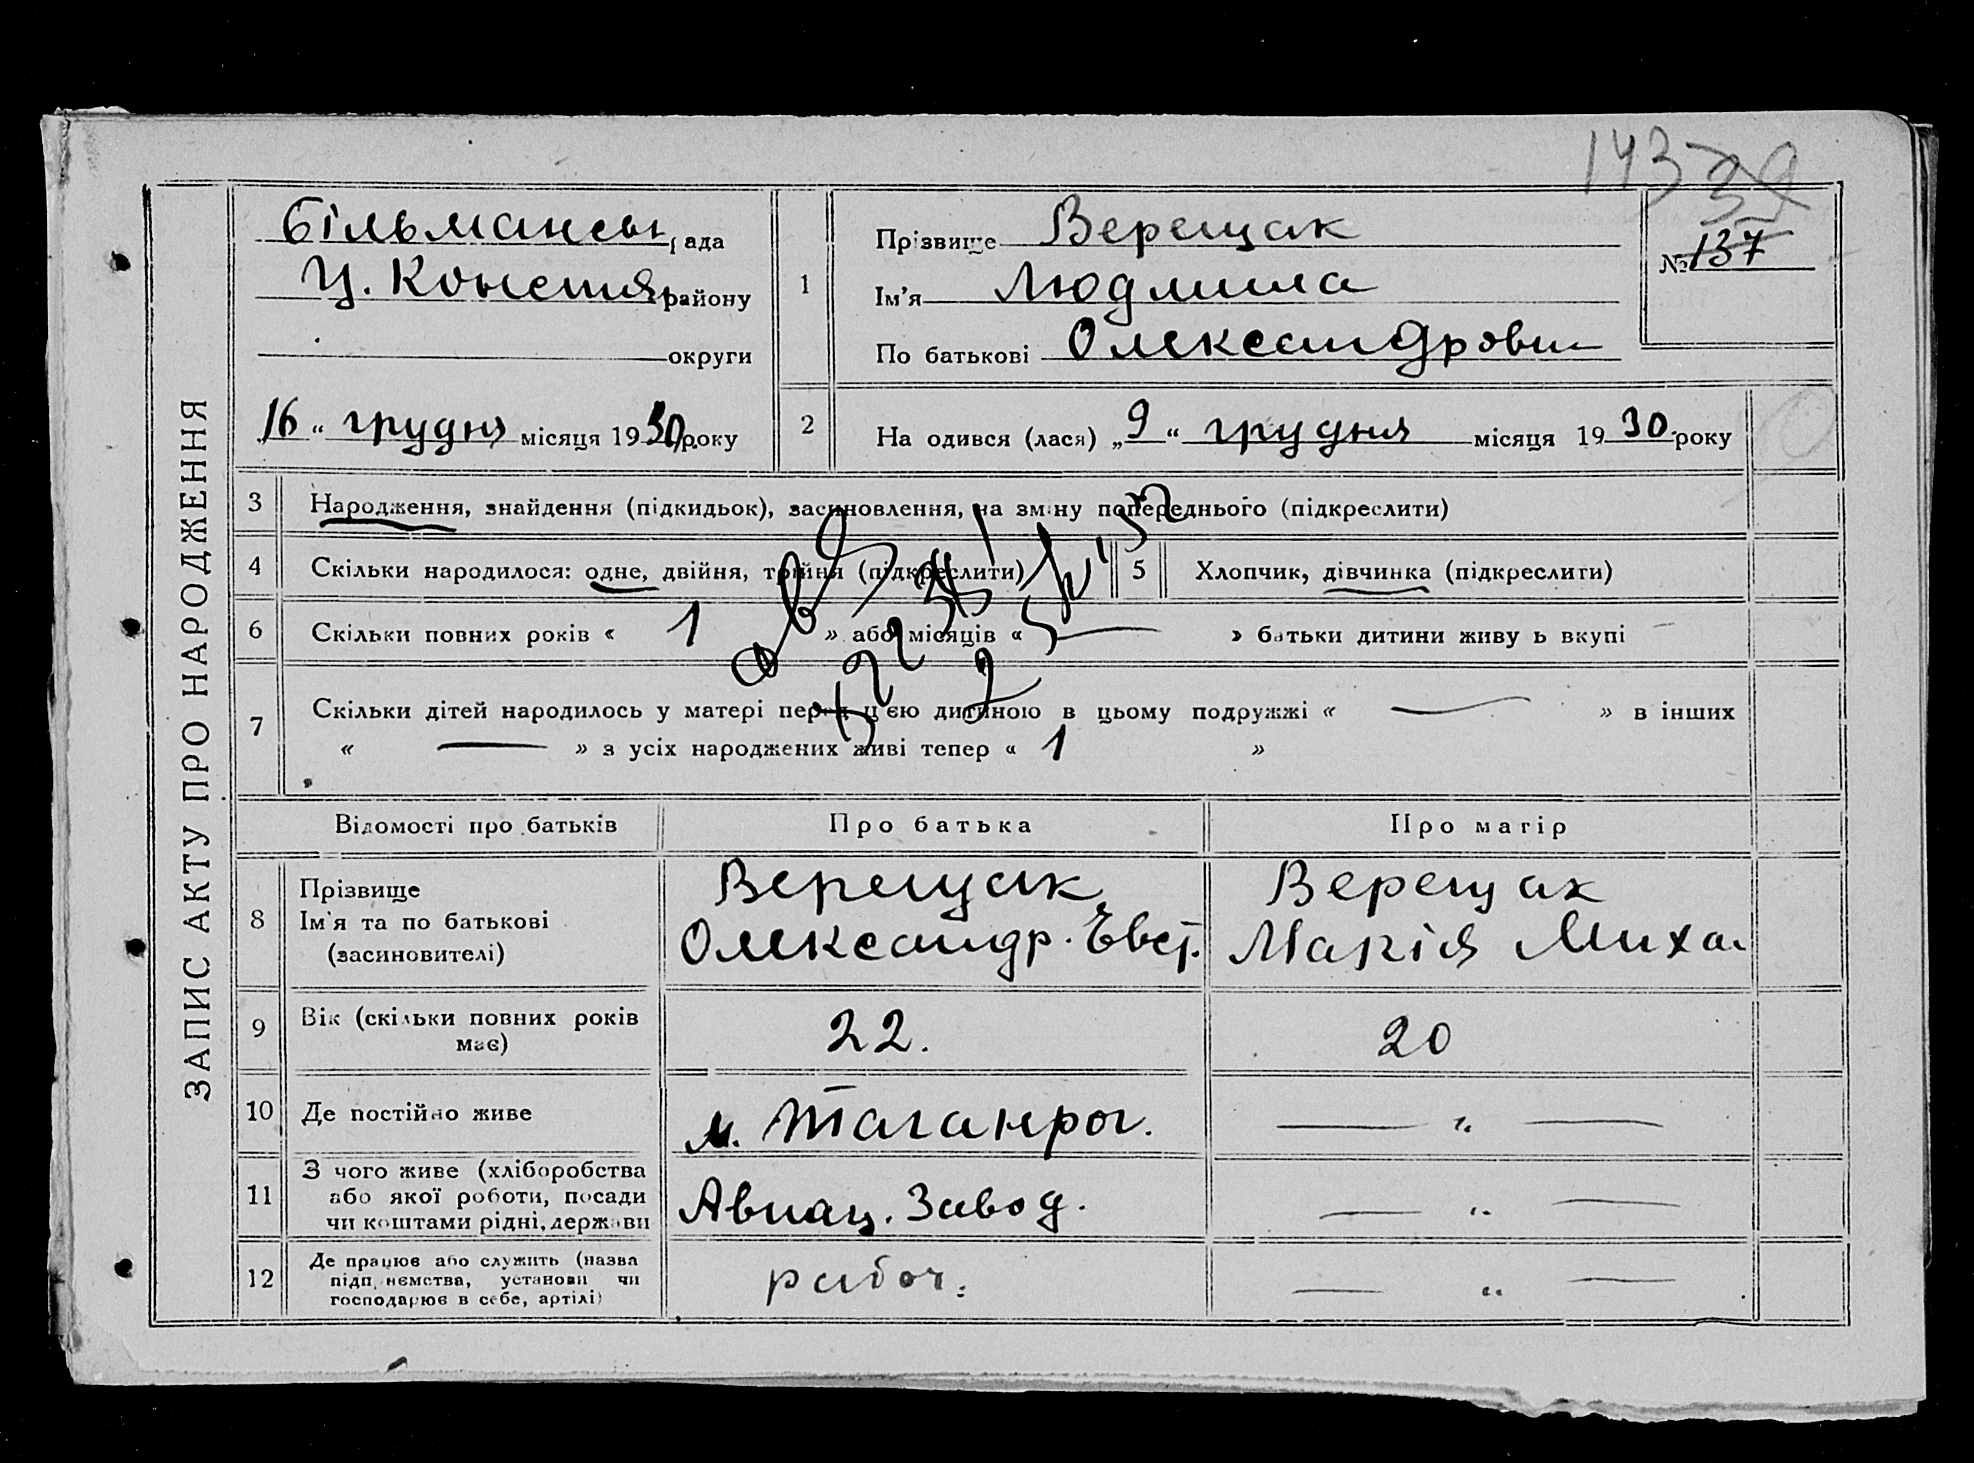 143 39
ЗАПИС АКТУ ПРО НАРОДЖЕННЯ
Більманськ рада
Ц. Констян району
округи
16 " грудня місяця 1930 року
1
Прізвище Верещак
Ім'я Людмила
По батькові Олександровн
№ 137
2
На одився (лася) „9" грудня місяця 1930 року
3 Народження, знайдення (підкидьок), засиновлення, на зміну попереднього (підкреслити)
4 Скільки народилося: одне, двійня, трійня (підкреслити)
5 Хлопчик, дівчинка (підкреслити)
6 Скільки повних років « 1 » або місяців « — » батьки дитини живу ь вкупі
7 Скільки дітей народилось у матері перед цією дитиною в цьому подружжі « — » в інших
« — » з усіх народжених живі тепер « 1 »
Відомості про батьків Про батька Про матір
8 Прізвище
Ім'я та по батькові
(засиновителі)
Верещак
Олександр. Евст.
Верещак
Марія Миха
9 Вік (скільки повних років
має)
22.
20
10 Де постійно живе м. Таганрог. — " —
11 З чого живе (хліборобства
або якої роботи, посади
чи коштами рідні, держави
Авиац. Завод.
— " —
12 Де працює або служить (назва
підп иємства, установи чи
господарює в себе, артілі)
рабоч.
— " —